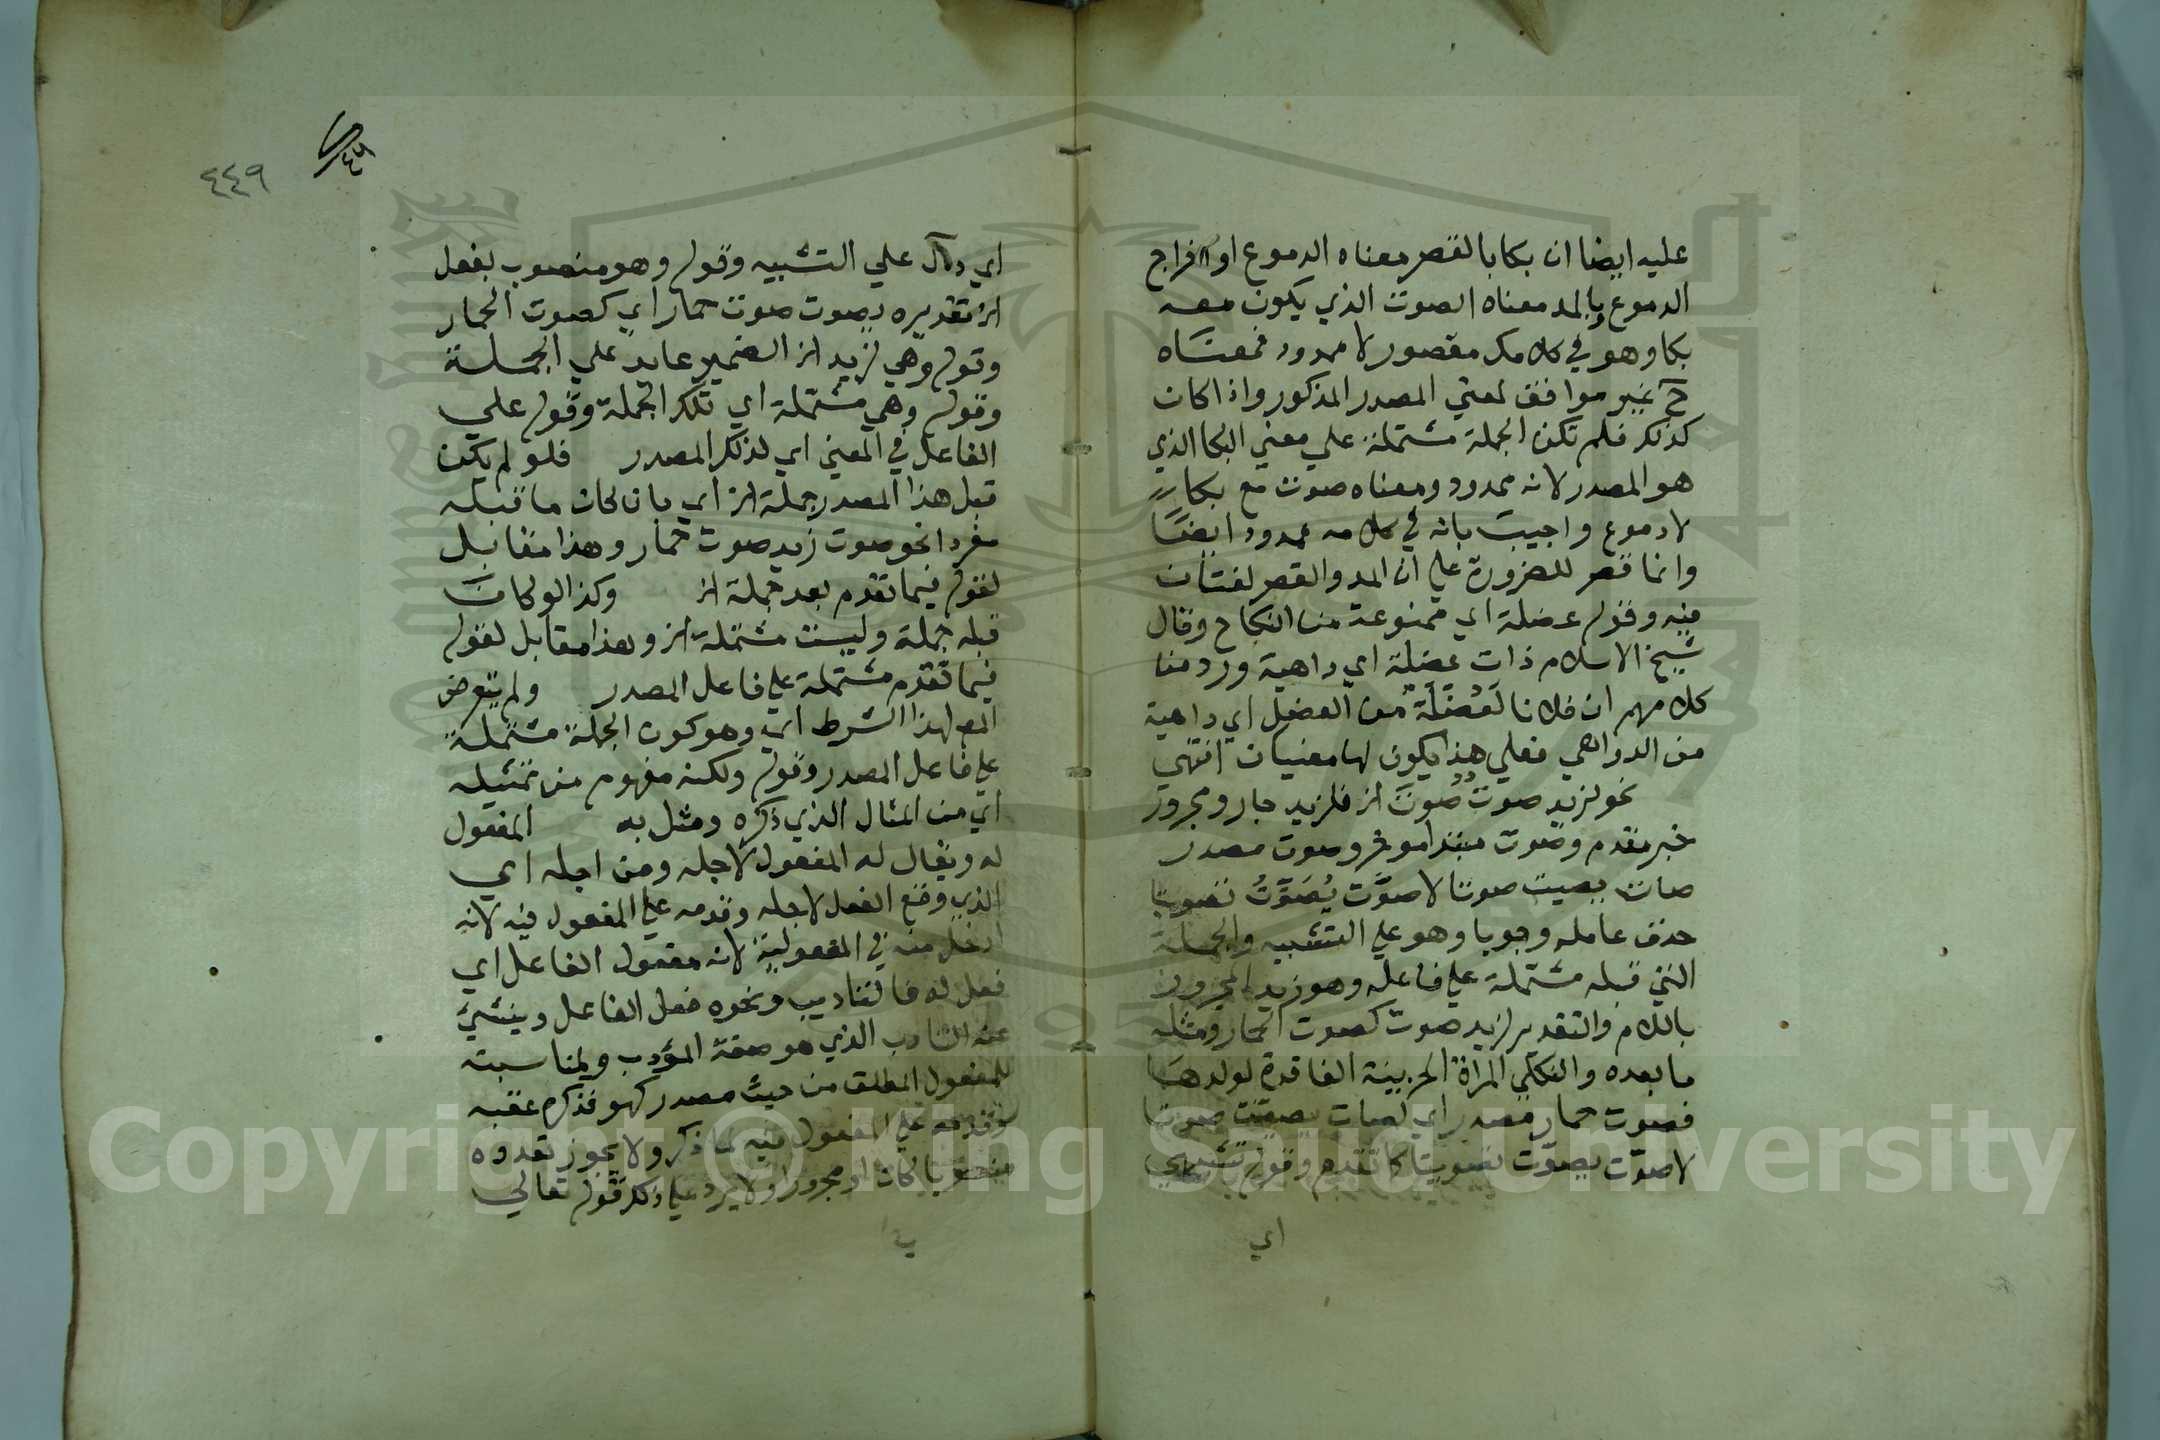 عليه ايضا ان بكا بالقصر معناه الدموع او اخراج
الدموع وبالمد معناه الصوت الذي يكون معه
بكا وهو في كلامك مقصور لا ممدود فمعناه
ح غير موافق لمعني المصدر المذكور واذا كان
كذلك فلم تكن الجملة مشتملة علي معني البكا الذي
هو المصدر لانه ممدود ومعناه صوت مع بكا
لا دموع واجيب بانه في كلامه ممدود ايضا
وانما قصر للضرورة علي ان المد والقصر لغتان
فيه وقوله عضلة اي ممنوعة من النكاح وقال
شيخ الاسلام ذات عضلة اي داهية ورد منا
كلامهم ان فلانا لعضلة من العضل اي داهية
من الدواهي فعلي هذا يكون لها معنيان انتهي
نحو لزيد صوت صوت الخ فلزيد جار ومجرور
خبر مقدم وصوت مبتدا موخر وصوت مصدر
صات يصيت صوتا لا صوَّت يُصَوِّتُ تصويتا
حذف عامله وجوبا وهو علي التشبيه والجملة
التي قبله مشتملة علي فاعله وهو زيد المجرور
باللام والتقدير لزيد صوت كصوت الحمار ومثله
ما بعده والثكلي المراة الحزينة الفاقدة لولدها
فصوت حمار مصدر اي لصات يصيت صوتا
لا صوّت يصوّت تصويتا كما تقدم وقوله تشبيهي
اي
٤٤٩
٤٦
اي دال علي التشبيه وقوله وهو منصوب بفعل
الخ تقديره يصوت صوت حمار اي كصوت الحمار
وقوله وهي لزيد الخ الضمير عايد علي الجملة
وقوله وهي مشتملة اي تلك الجملة وقوله علي
الفاعل في المعني اي لذلك المصدر فلو لم يكن
قبل هذا المصدر جملة الخ اي بان كان ما قبله
مفردا نحو صوت زيد صوت حمار وهذا مقابل
لقوله فيما تقدم بعد جملة الخ وكذا لو كان
قبله جملة وليست مشتملة الخ وهذا مقابل لقوله
فيما تقدم مشتملة علي فاعل المصدر ولم يتعرض
المص لهذا الشرط اي وهو كون الجملة مشتملة
علي فاعل المصدر وقوله ولكنه مفهوم من تمثيله
اي من المثال الذي ذكره ومثل به المفعول
له ويقال له المفعول لاجله ومن اجله اي
الذي وقع الفعل لاجله وقدمه علي المفعول فيه لانه
ادخل منه في المفعولية لانه مفعول الفاعل اي
فعل له فالتاديب ونحوه فعل الفاعل وينشئ
عنه التادب الذي هو صفة المؤدب ولمناسبته
للمفعول المطلق من حيث مصدر كهو فذكره عقبه
وقدمه علي المفعول فيه لما ذكر ولا يجوز تعدده
منصوبا كان او مجرورا ولا يرد علي ذلك قوله تعالي
Copyright © King Saud University